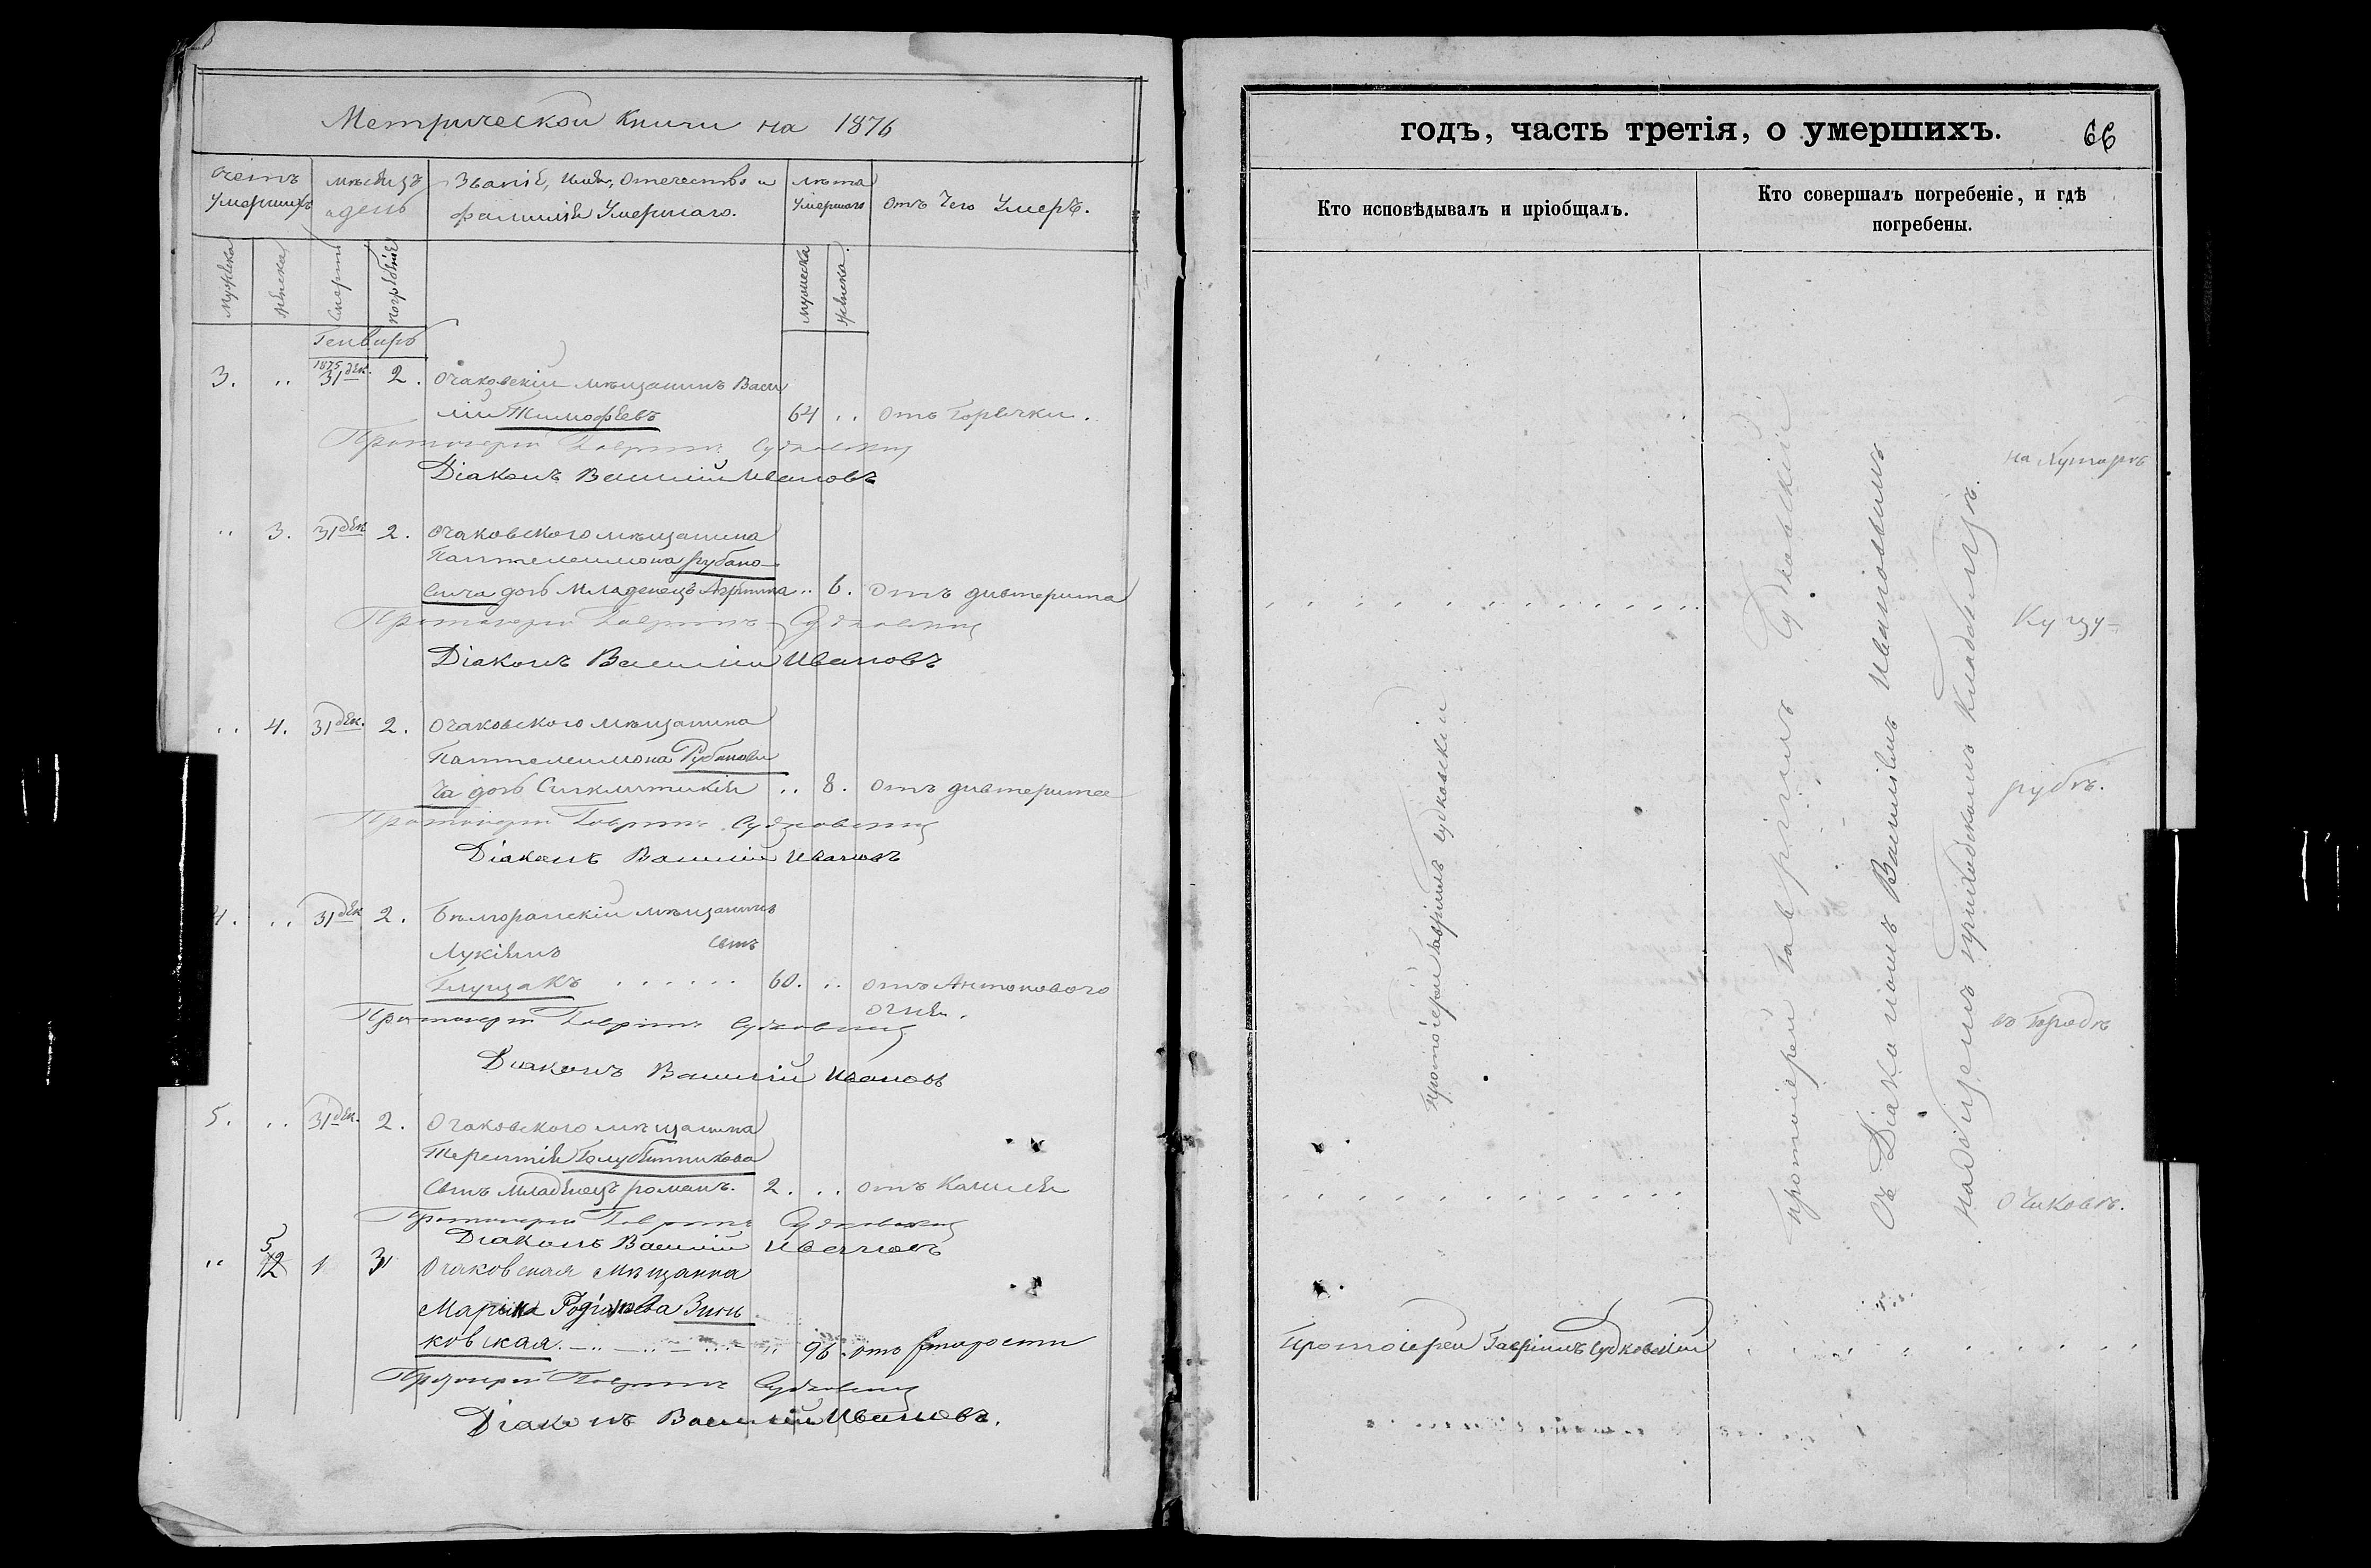 Метрической книги на 1876
счетъ умершихъ
мѣсяцъ и день
Званіе, имя, отчество и фамилія умершаго.
лѣта умершаго
отъ чего умеръ.
мужеска
женска
смерти
погребенія
мужеска
женска.
Генварь
3. .. 1875 31 дек. 2. Очаковскій мѣщанинъ Васи
лій Тимофѣевъ 64 .. отъ горячки.
Протоіерей Гавріилъ Судковскій
Діаконъ Василій Ивановъ
.. 3. 31 дек 2. Очаковского мѣщанина
Пантелеимона Рубано-
вича дочь младенецъ .. 6. отъ дивтерита
Протоіерей Гавріилъ Судковскій
Діаконъ Василій Ивановъ
.. 4. 31 дек. 2. Очаковского мѣщанина
Пантелеимона Рубанови
ча дочь Синклитикія .. 8. отъ дивтерита
Протоіерей Гавріилъ Судковскій
Діаконъ Василій Ивановъ
4. .. 31 дек 2. мѣщанинъ
Лукіянъ
60. .. отъ Антонового
огня.
Протоіерей Гавріилъ Судковскій
Діаконъ Василій Ивановъ
5. .. 31 дек. 2. Очаковского мѣщанина
Терентія Голубятникова
сынъ младенецъ романъ. 2. .. отъ кашля
Протоіерей Гавріилъ Судковскій
Діаконъ Василій Ивановъ
.. 5 1 3 Очаковская мѣщанка
Марина Родіонова Зинь
ковская 96. отъ старости
Протоіерей Гавріилъ Судковскій
Діаконъ Василій Ивановъ.
годъ, часть третія, о умершихъ. 66
Кто исповѣдывалъ и пріобщалъ.
Кто совершалъ погребеніе, и гдѣ
погребены.
протоіерей Гавріилъ Судковскій
протоіерей Гавріилъ Судковскій
съ Діакономъ Василіемъ Ивановымъ
на общемъ приходскомъ кладбищѣ.
на хуторѣ
Куцу-
рубѣ.
въ городѣ
Очаковѣ.
протоіерей Гавріилъ Судковскій